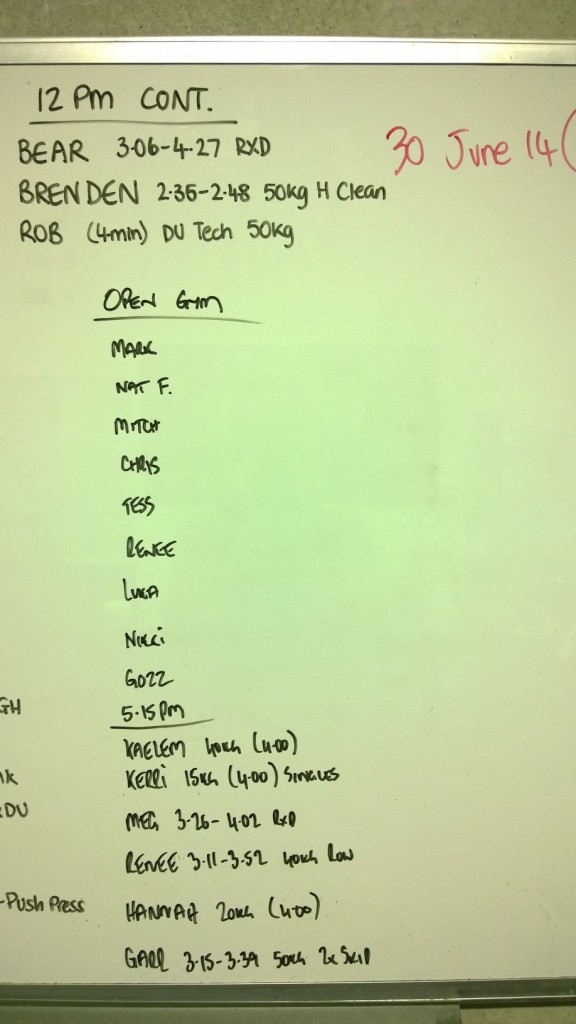 12 Pm CONT.
30 June 14 (
BEAR 3·06-4·27 RXD
BRENDEN 2·35-2·48 50kg H Clean
ROB (4min) DU Tech 50kg
OPEN GYM
MARK
NAT F.
MITCH
CHRIS
TESS
RENEE
LUKA
NIKKI
GOZZ
GH
5·15 PM
KAELEM 40KG (4·00)
KERRi 15KG (4·00) SINGLES
DU
MEG 3·26-4·02 RXD
RENEE 3·11-3·52 40KG ROW
-Push Press
HANNAH 20KG (4·00)
3·15-3·39 50KG 2x SKIP